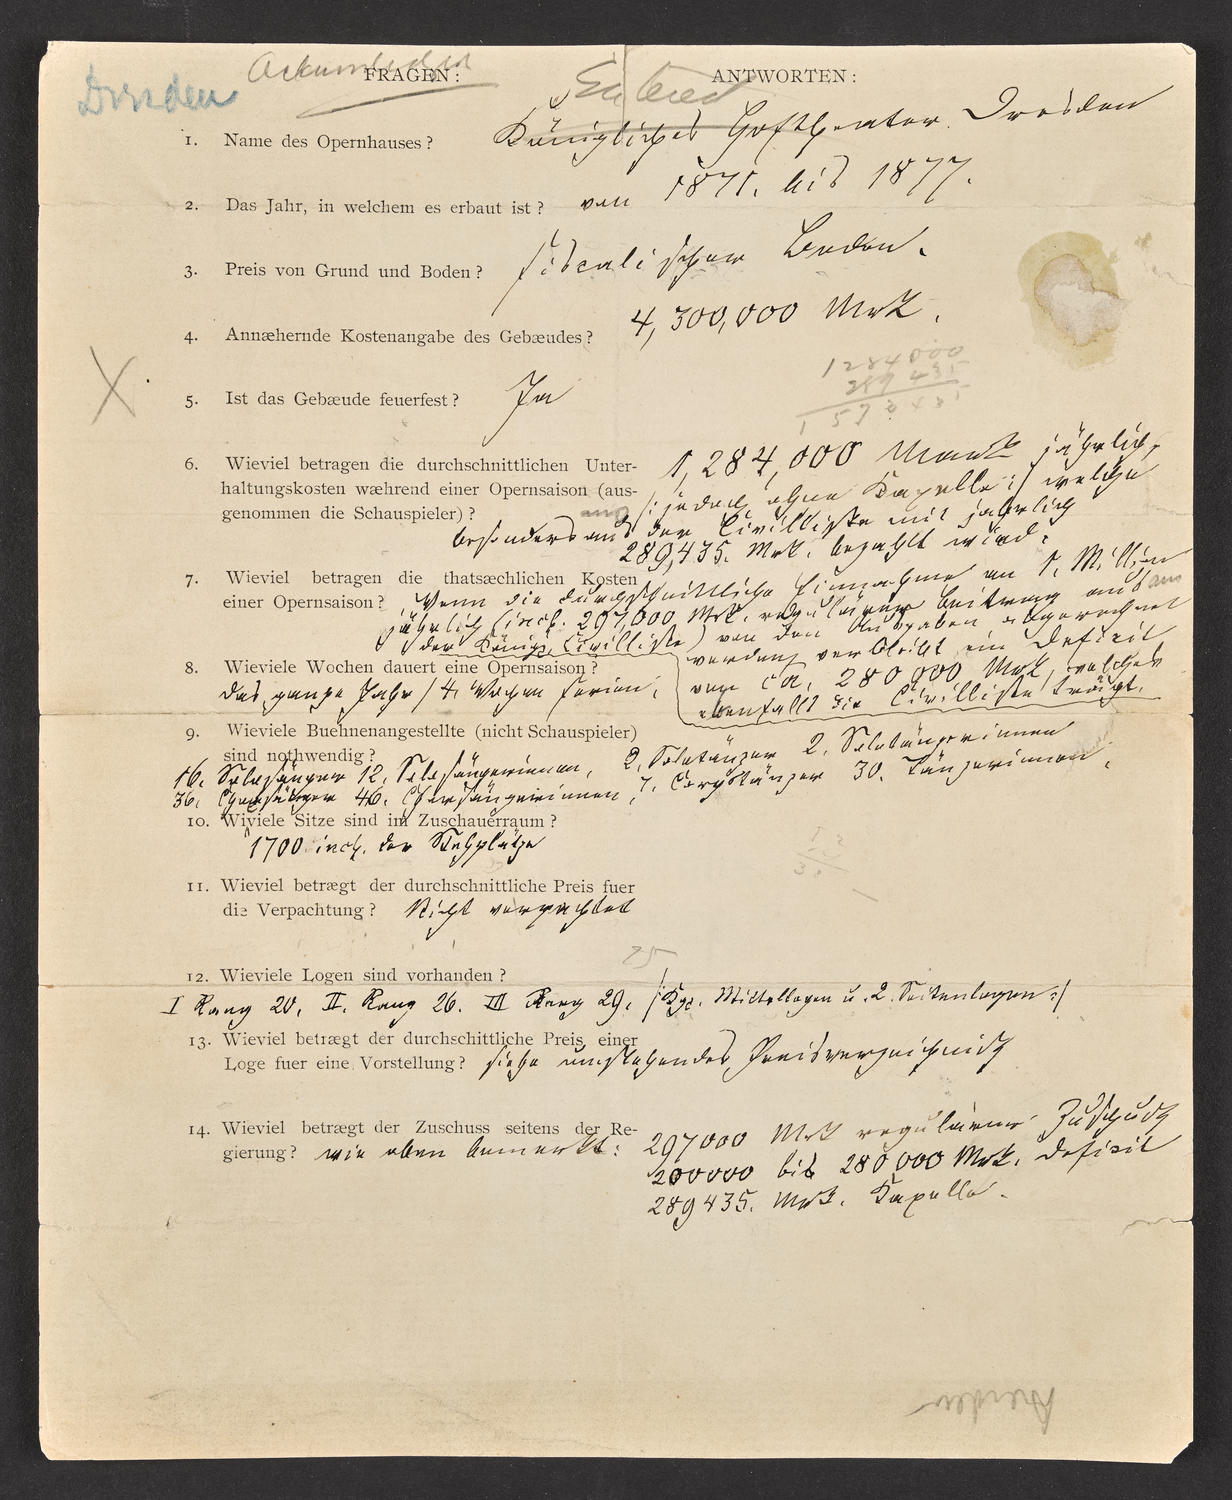 Dresden
FRAGEN:
Entered
ANTWORTEN:
1. Name des Opernhauses? Königliches Hoftheater Dresden
2. Das Jahr, in welchem es erbaut ist? von 1871. bis 1877.
3. Preis von Grund und Boden? fiscalischer Boden.
4. Annæhernde Kostenangabe des Gebæudes? 4,300,000 Mrk.
1284000
289 435
1 573 435
X
5. Ist das Gebæude feuerfest? Ja
6. Wieviel betragen die durchschnittlichen Unter-
haltungskosten wæhrend einer Opernsaison (aus-
genommen die Schauspieler)?
1,284,000 Mark jährlich,
/: jedoch ohne Kapelle :/ welche
besonders aus der Civilliste mit jährlich
289,435. Mrk. bezahlt wird.
7. Wieviel betragen die thatsæchlichen Kosten
einer Opernsaison? Wenn die durchschnittliche Einnahme an 1. Million
jährlich (incl. 297,000 Mrk. regulärer Beitrag aus
der Königl. Civilliste) von den Ausgaben abgerechnet
werden, verbleibt ein Deficit
von ca. 280,000 Mrk, welches
ebenfalls die Civilliste trägt.
8. Wieviele Wochen dauert eine Opernsaison?
das ganze Jahr / 4. Wochen Ferien.
9. Wieviele Buehnenangestellte (nicht Schauspieler)
sind nothwendig?
16. Solosänger 12. Solosängerinnen, 2. Solotänzer 2. Solotänzerinnen
36. Chorsänger 46. Chorsängerinnen, 7. Corpstänzer 30. Tänzerinnen.
10. Wiviele Sitze sind im Zuschauerraum?
1700 incl. der Stehplätze
11. Wieviel betrægt der durchschnittliche Preis fuer
die Verpachtung? Nicht verpachtet
75
12. Wieviele Logen sind vorhanden?
I Rang 20, II. Rang 26. III Rang 29. /: Kgl. Mittellogen u. 2. Seitenlogen :/
13. Wieviel betrægt der durchschittliche Preis einer
Loge fuer eine Vorstellung? siehe umstehendes Preisverzeichniß
14. Wieviel betrægt der Zuschuss seitens der Re-
gierung? wie oben bemerkt: 297000 Mrk regulärer Zuschuß
200000 bis 280,000 Mrk. Deficit
289435. Mrk. Kapelle.
Dresden